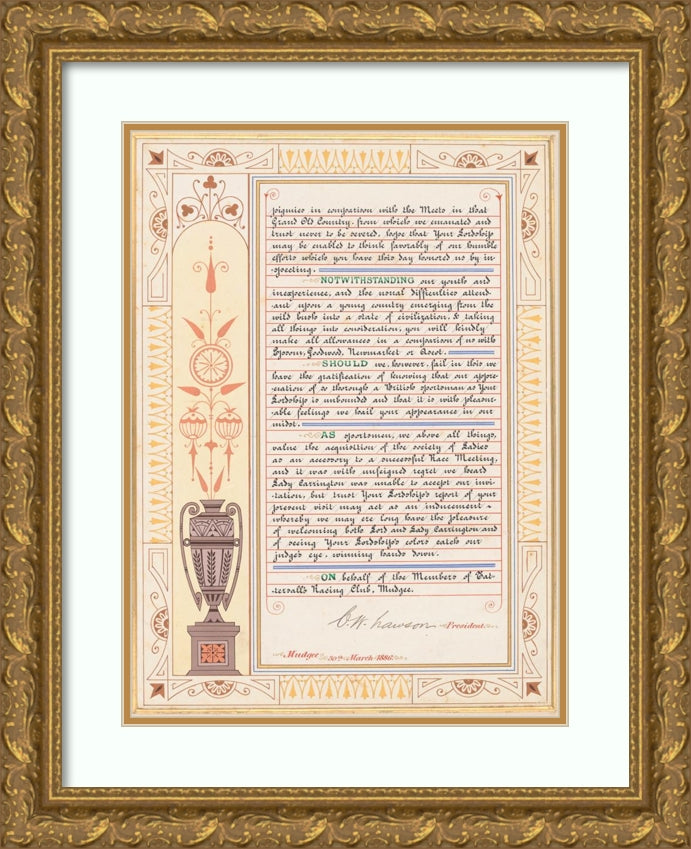 pigmies in comparison with the Meets in that
Grand Old Country, from which we emanated and
trust never to be severed, hope that Your Lordship
may be enabled to think favorably of our humble
efforts which you have this day honored us by in-
-specting.
NOTWITHSTANDING our youth and
inexperience, and the usual difficulties attend-
-ant upon a young country emerging from the
wild bush into a state of civilization, & taking
all things into consideration, you will kindly
make all allowances in a comparison of us with
Epsom, Goodwood, Newmarket or Ascot.
SHOULD we, however, fail in this we
have the gratification of knowing that our appre-
-ciation of so thorough a British sportsman as Your
Lordship is unbounded and that it is with pleasur-
-able feelings we hail your appearance in our
midst.
AS sportsmen, we above all things,
value the acquisition of the society of Ladies
as an accessory to a successful Race Meeting,
and it was with unfeigned regret we heard
Lady Carrington was unable to accept our invi-
-tation, but trust Your Lordship's report of your
present visit may act as an inducement
whereby we may ere long have the pleasure
of welcoming both Lord and Lady Carrington and
of seeing Your Lordship's colors catch our
judge's eye, winning hands down.
ON behalf of the Members of Tat-
-tersall's Racing Club, Mudgee.
Lawson President
Mudgee 30th March 1886